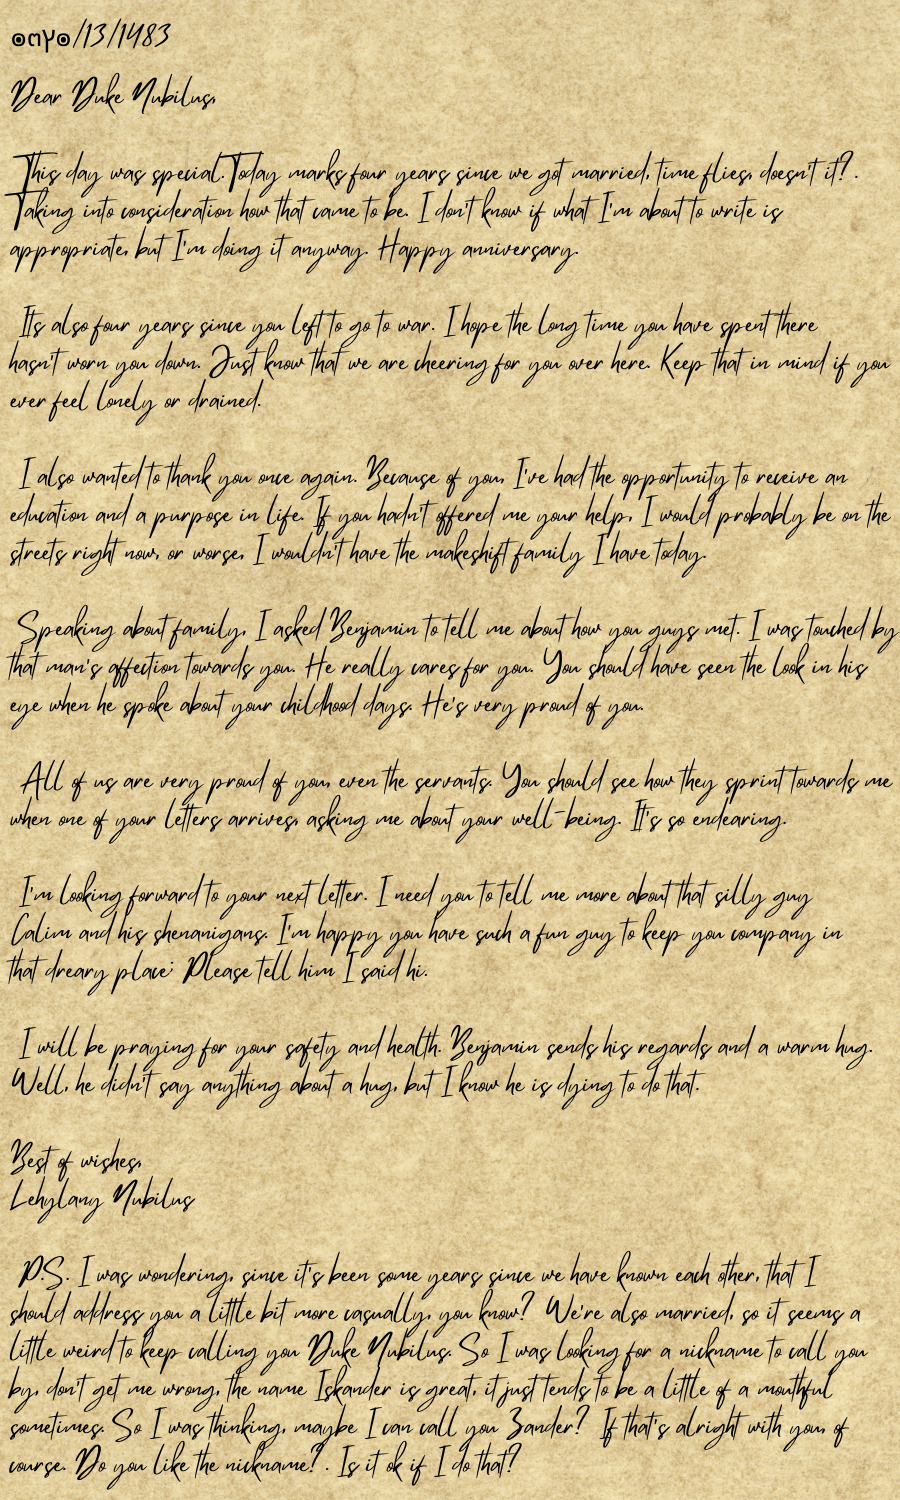 /13/1483
Dear Duke Nubilus,
This day was special. Today marks four years since we got married, time flies, doesn't it? .
Taking into consideration how that came to be. I don't know if what I'm about to write is
appropriate, but I'm doing it anyway. Happy anniversary.
It's also four years since you left to go to war. I hope the long time you have spent there
hasn't worn you down. Just know that we are cheering for you over here. Keep that in mind if you
ever feel lonely or drained.
I also wanted to thank you once again. Because of you, I've had the opportunity to receive an
education and a purpose in life. If you hadn't offered me your help, I would probably be on the
streets right now, or worse, I wouldn't have the makeshift family I have today.
Speaking about family, I asked Benjamin to tell me about how you guys met. I was touched by
that man's affection towards you. He really cares for you. You should have seen the look in his
eye when he spoke about your childhood days. He's very proud of you.
All of us are very proud of you, even the servants. You should see how they sprint towards me
when one of your letters arrives, asking me about your well-being. It's so endearing.
I'm looking forward to your next letter. I need you to tell me more about that silly guy
Calim and his shenanigans. I'm happy you have such a fun guy to keep you company in
that dreary place; Please tell him I said hi.
I will be praying for your safety and health. Benjamin sends his regards and a warm hug.
Well, he didn't say anything about a hug, but I know he is dying to do that.
Best of wishes,
Lehylany Nubilus
P.S. I was wondering, since it's been some years since we have known each other, that I
should address you a little bit more casually, you know? We're also married, so it seems a
little weird to keep calling you Duke Nubilus. So I was looking for a nickname to call you
by, don't get me wrong, the name Iskander is great, it just tends to be a little of a mouthful
sometimes. So I was thinking, maybe I can call you Zander? If that's alright with you, of
course. Do you like the nickname? . Is it ok if I do that?